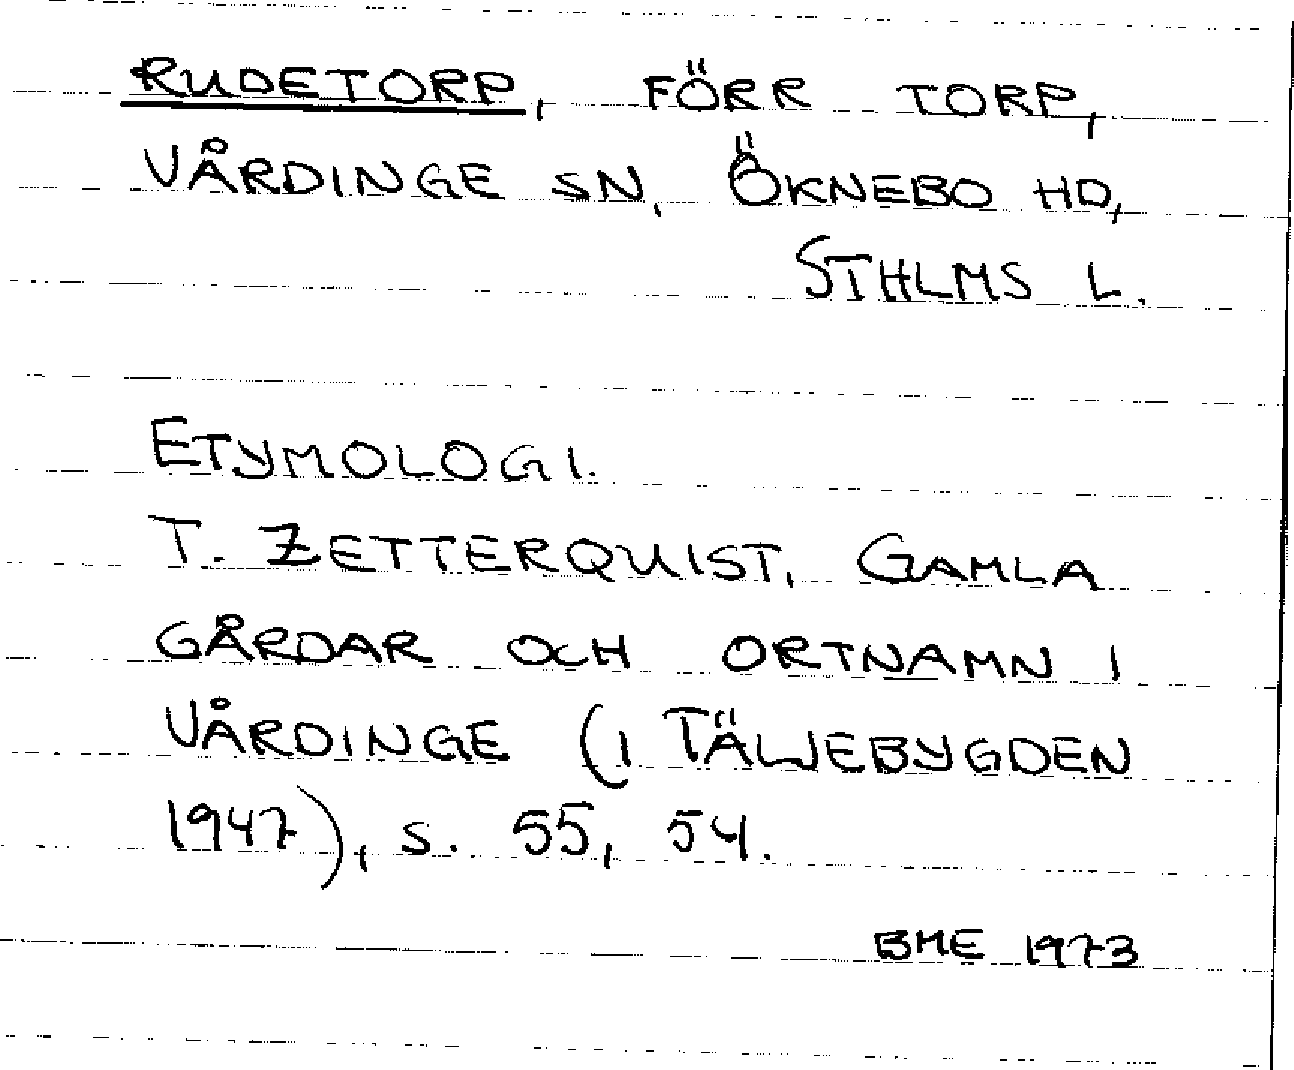 RUDETORP, FÖRR TORP,
VÅRDINGE SN, ÖKNEBO HD,
STHLMS L.
ETYMOLOGI.
T. ZETTERQUIST, GAMLA
GÅRDAR OCH ORTNAMN I
VÅRDINGE (I TÄLJEBYGDEN
1947), S. 55, 54.
BME 1973